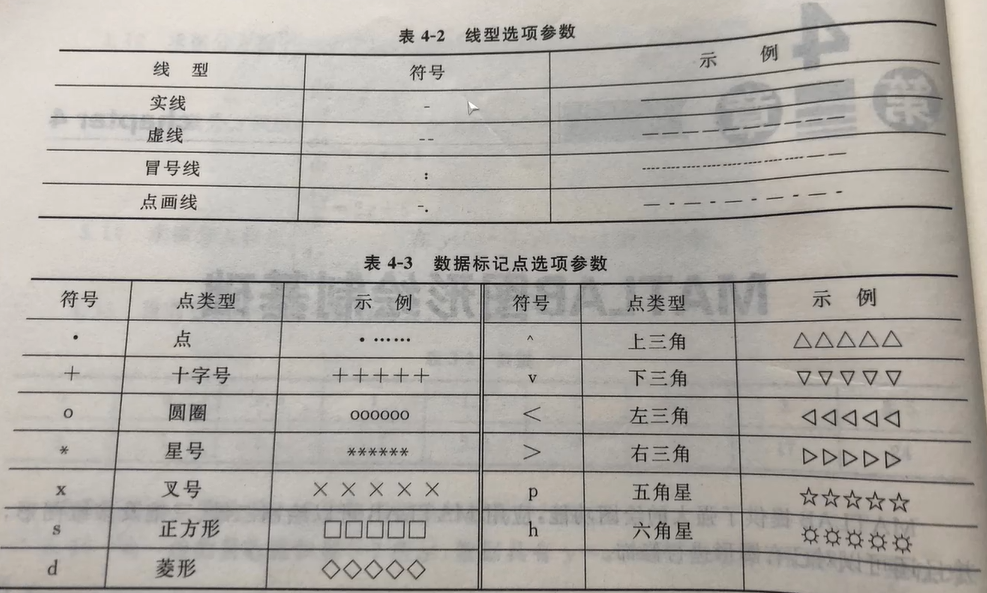 表 4-2 线型选项参数
线 型 符号 示 例
实线 -
虚线 --
冒号线 :
点画线 -.
表 4-3 数据标记点选项参数
符号 点类型 示 例 符号 点类型 示 例
· 点 ·…… ^ 上三角 △△△△△
+ 十字号 +++++ v 下三角 ▽▽▽▽▽
o 圆圈 oooooo < 左三角 ◁◁◁◁◁
* 星号 ****** > 右三角 ▷▷▷▷▷
x 叉号 ××××× p 五角星 ☆☆☆☆☆
s 正方形 □□□□□ h 六角星 ✡✡✡✡✡
d 菱形 ◇◇◇◇◇